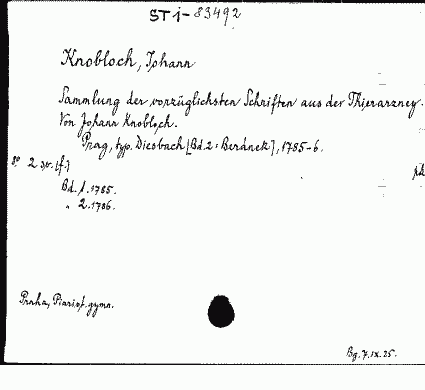 ST i - 83492
Knobloch, Johann
Sammlung der vorzüglichsten Schriften aus der Thierarzney.
Von Johann Knobloch.
Prag, typ. Diesbach [Bd. 2: Beránek], 1785-6.
8° 2 sv. (f.)
Bd. 1. 1785.
" 2. 1786.
Praha, Piarist. gymn.
Bg. 7. IX. 25.